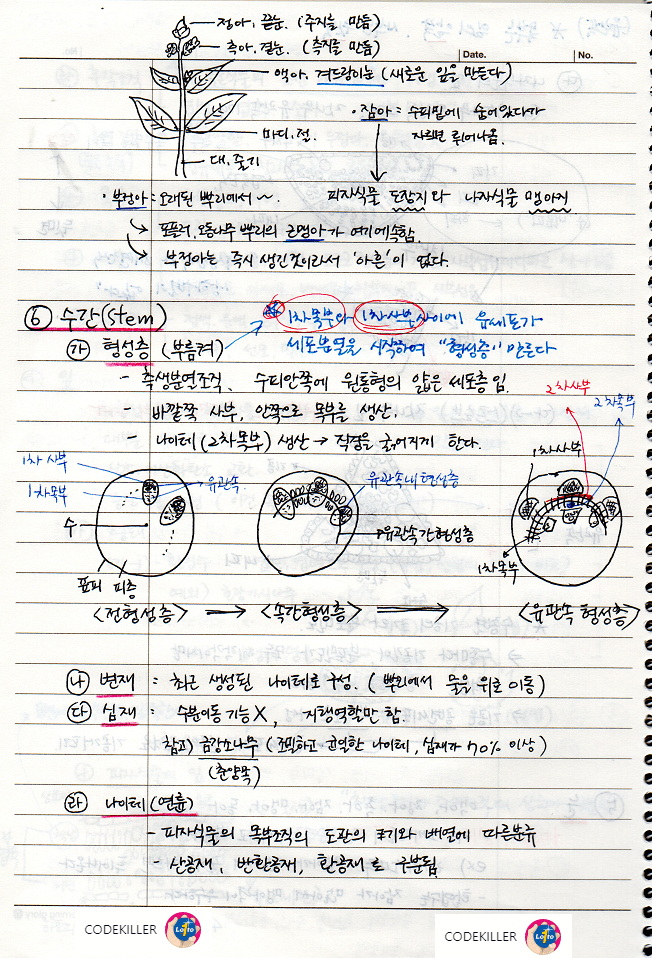 정아, 끝눈. (주지를 만듦)
측아, 곁눈. (측지를 만듦)
Date.
No.
액아. 겨드랑이눈 (새로운 잎을 만든다)
· 잠아 = 수피밑에 숨어있다가
자르면 튀어나옴.
마디, 절.
대, 줄기
· 부정아 = 오래된 뿌리에서 ~.
피자식물 도장지 다 나자식물 맹아지
↳ 포플러, 오동나무 뿌리의 근맹아가 여기에속함.
↳ 부정아는 즉시 생긴것이라서 '아흔'이 없다.
⑥ 수간(stem)
1차목부와 1차사부 사이에 유세포가
㉮ 형성층 (부름켜)
세포분열을 시작하여 "형성층" 만든다
- 측생분열조직. 수피안쪽에 원통형의 얇은 세포층 임.
바깥쪽 사부, 안쪽으로 목부를 생산.
2차사부
2차목부
- 나이테 (2차목부) 생산 → 직경을 굵어지게 한다.
1차사부
1차사부
유관속
유관속내형성층
1차목부
수
유관속간형성층
1차목부
표피 피층
<전형성층> → <속간형성층> ⇒ <유관속 형성층>
㉯ 변재 = 최근 생성된 나이테로 구성. (뿌리에서 물을 위로 이동)
㉰ 심재 = 수분이동 기능 X, 지탱역할만 함.
참고) 금강소나무 (조밀하고 균일한 나이테, 심재가 70% 이상)
(춘양목)
㉱ 나이테 (연륜)
- 피자식물의 목부조직의 도관의 크기와 배열에 따른분류
- 산공재, 반환공재, 환공재로 구분됨.
CODEKILLER
Lotto
CODEKILLER
Lotto